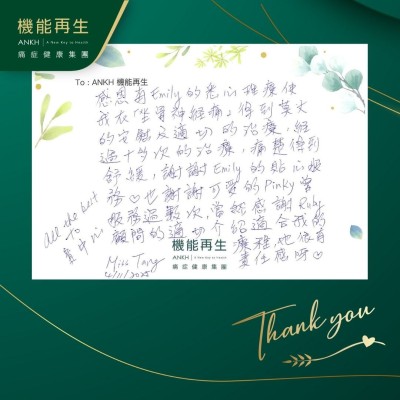 機能再生
ANKH | A New Key to Health
痛症健康集團
To : ANKH 機能再生
感恩有Emily的悉心理療使
我在「坐骨神經痛」得到莫大
的安慰及適切的治療，經
過十多次的治療，痛楚得到
舒緩，謝謝Emily的貼心服
務♡也謝謝可愛的Pinky常
服務過數次，當然感謝Ruby
顧問的適切介紹適合我的
療程他很有
責任感呀♡
All the best
To
貴中心
Miss Tang
4/11/2025
機能再生
ANKH | A New Key to Health
痛症健康集團
Thank you